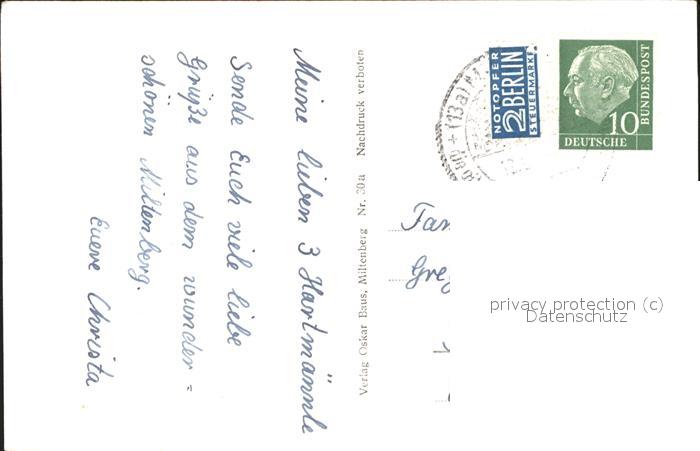 Meine lieben 3 Hartmännle
Sende Euch viele liebe
Grüße aus dem wunder=
schönen Miltenberg.
Euere Christa
Verlag Oskar Baus, Miltenberg Nr. 30a Nachdruck verboten
(13a)
NOTOPFER
2 BERLIN
STEUERMARKE
10
DEUTSCHE
BUNDESPOST
Fam
Greg
privacy protection (c)
Datenschutz